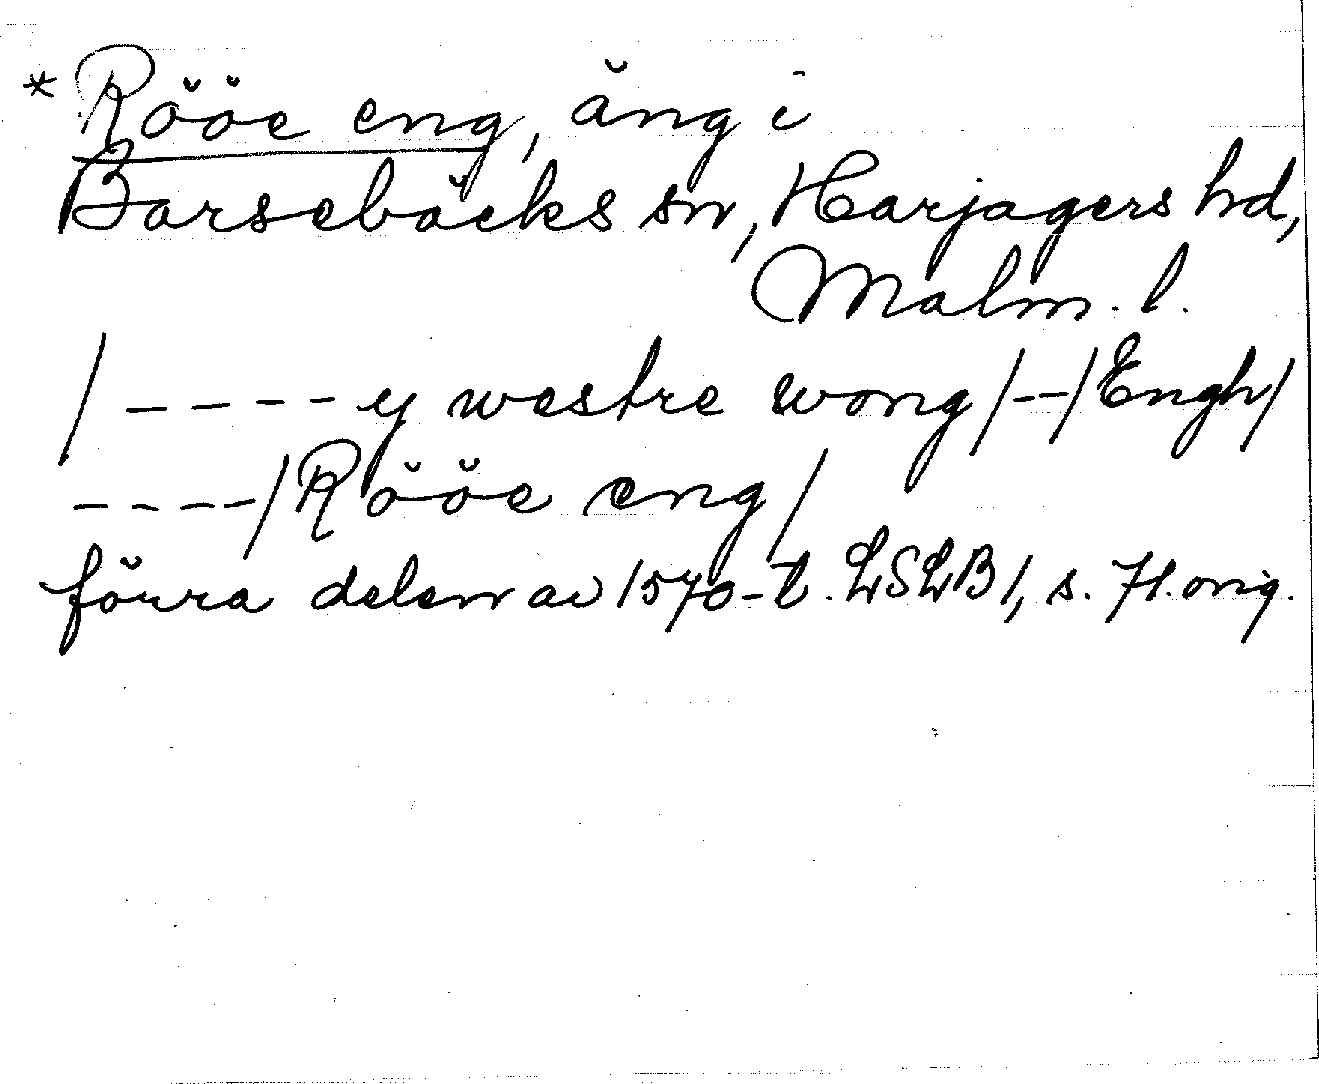 * Rööe eng, äng i
Barsebäcks sn, Harjagers hd,
Malm. l.
/ - - - - y westre wong / - - / Engh /
- - - - / Rööe eng /
förra delen av 1570-t. LSLB 1, s. 71. orig.